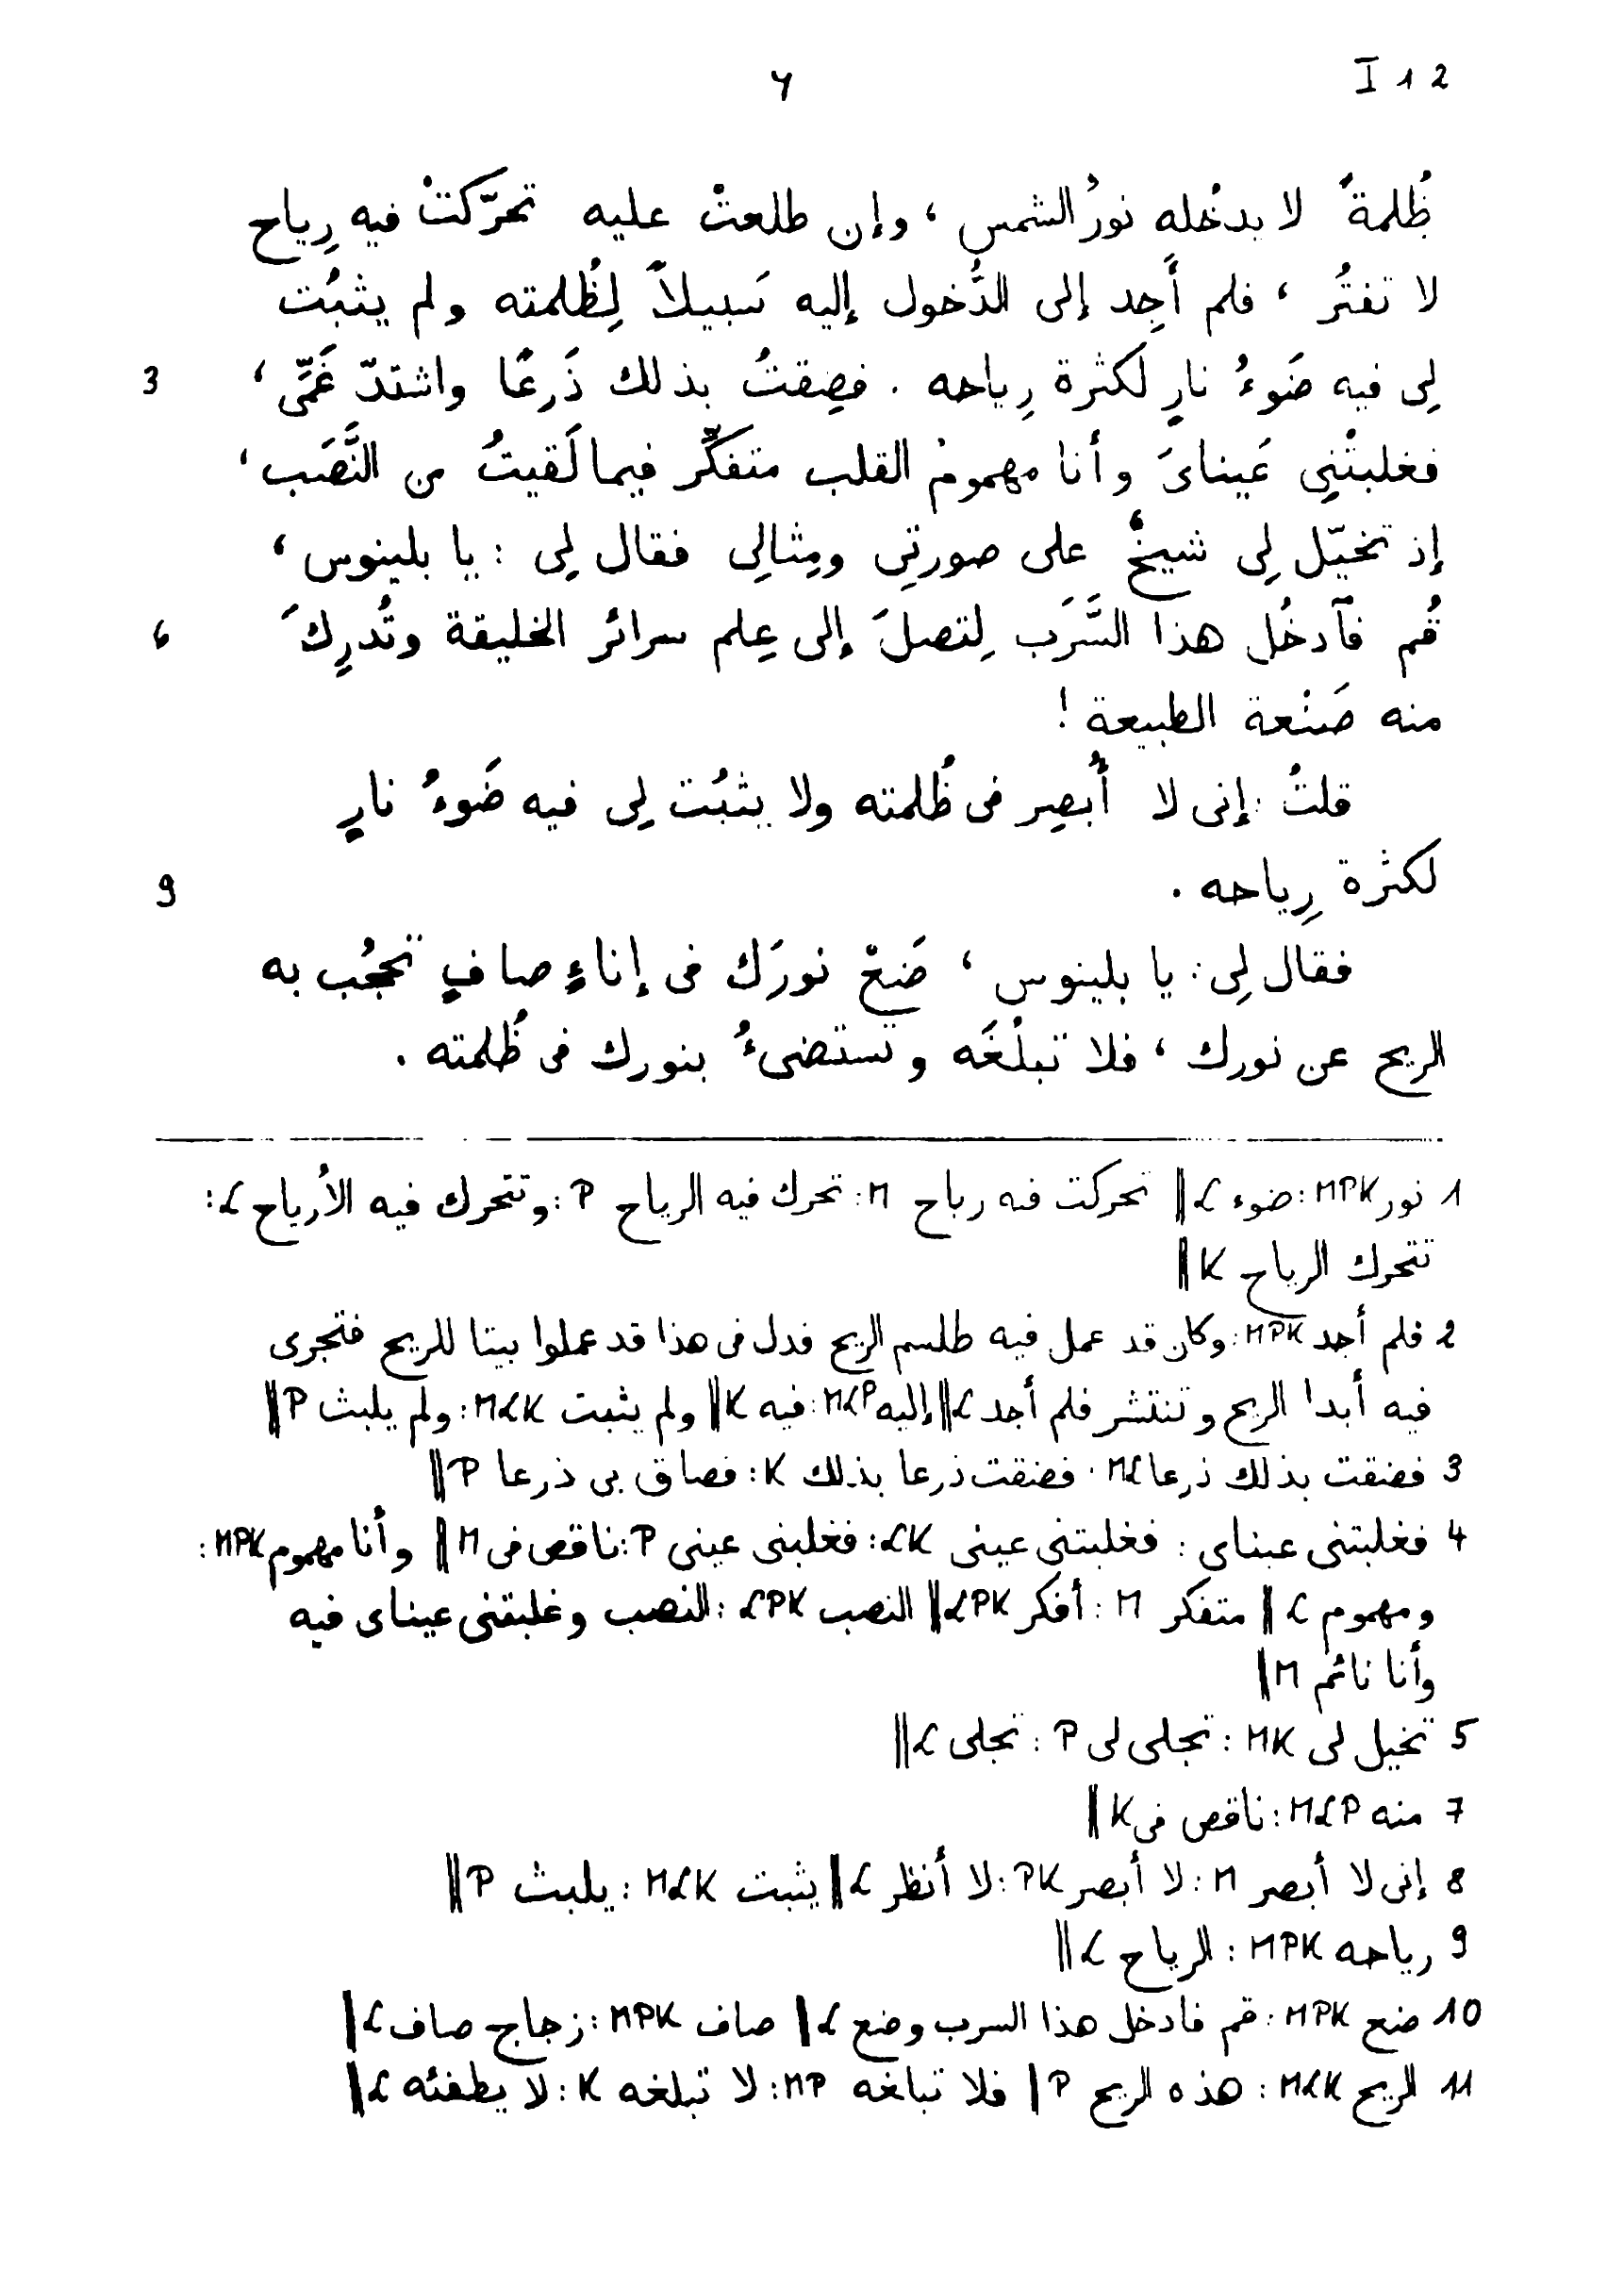 I 1 2
٦
ظُلمةً لا يدخُله نورُ الشمس، وإن طلعتْ عليه تحرّكتْ فيه رِياح
لا تفتُر، فلم أَجِد إلى الدُّخول إليه سَبيلاً لِظُلمته ولم يثبُت
لِى فيه ضَوءُ نارٍ لكثرة رِياحه. فضِقتُ بذلك ذَرعًا واشتدّ غَمِّى، 3
فغلبتْنِى عَيناىَ وأنا مهمومُ القلب متفكِّر فيما لَقيتُ من النَّصَب،
إذ تخيّل لِى شيخٌ على صورتِى ومِثالِى فقال لِى: يا بلينوس،
قُم فآدخُل هذا السَّرَب لِتصلَ إلى عِلم سرائر الخليقة وتُدرِكَ 6
منه صَنْعة الطبيعة!
قلتُ: إنى لا أُبصِر فى ظُلمته ولا يثبُت لِى فيه ضَوءُ نارٍ
لكثرة رِياحه. 9
فقال لِى: يا بلينوس، ضَعْ نورَك فى إناءٍ صافٍ تحجُب به
الريح عن نورك، فلا تبلُغَه وتستضىءُ بنورك فى ظُلمته.
1 نور MPK: ضوء L || تحركت فىه رياح M: تحرك فيه الرياح P: وتتحرك فيه الأرياح L:
تتحرك الرياح K ||
2 فلم أجد MPK: وكان قد عمل فيه طلسم الريح فدل فى هذا قد عملوا بيتا للريح فتجرى
فيه أبدا الريح وتنتشر فلم أجد L || إليه MLP: فيه K || ولم يثبت MLK: ولم يلبث P ||
3 فضقت بذلك ذرعا ML: فضقت ذرعا بذلك K: فضاق بى ذرعا P ||
4 فغلبتنى عيناى: فغلبتنى عينى LK: فغلبنى عينى P: ناقص فى M || وأنا مهموم MPK:
ومهموم L || متفكر M: أفكر LPK || النصب LPK: النصب وغلبتنى عيناى فيه
وأنا نائم M ||
5 تخيل لى MK: تجلى لى P: تجلى L ||
7 منه MLP: ناقص فى K ||
8 إنى لا أبصر M: لا أبصر PK: لا أنظر L || يثبت MLK: يلبث P ||
9 رياحه MPK: الرياح L ||
10 ضع MPK: قم فادخل هذا السرب وضع L || صاف MPK: زجاج صاف L ||
11 الريح MLK: هذه الريح P || فلا تبلغه MP: لا تبلغه K: لا يطفئه L ||